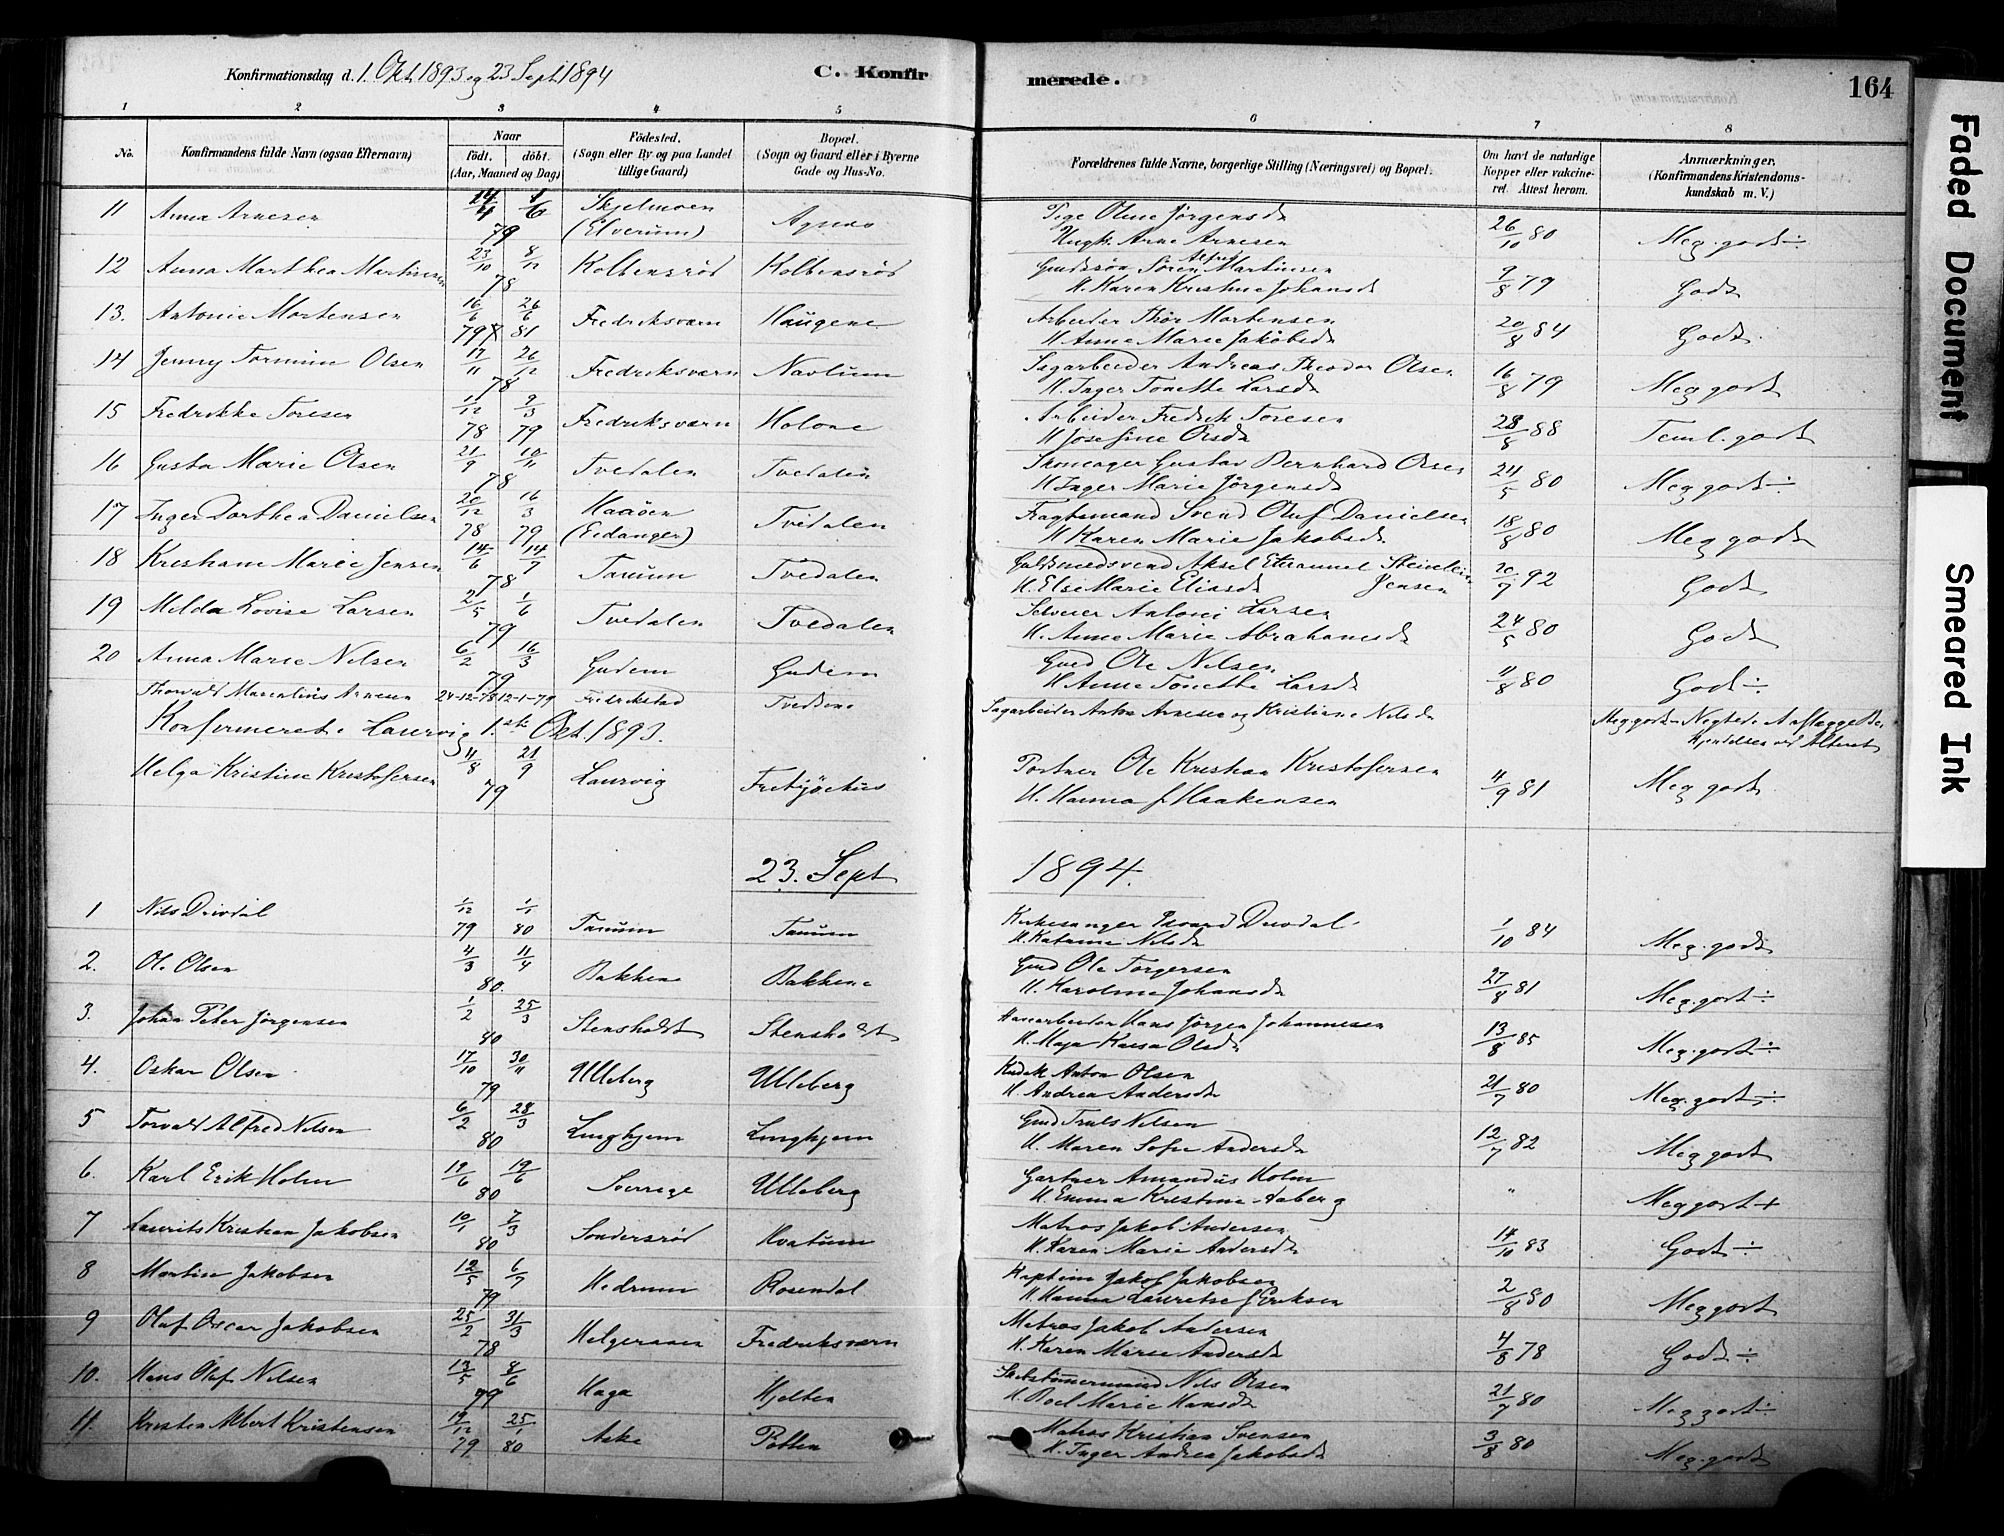 Konfirmationsdag d. 1. Okt. 1893 og 23 Sept. 1894
C. Konfirmerede.
164
1 2 3 4 5 6 7 8
No.
Konfirmandens fulde Navn (ogsaa Efternavn)
Naar
födt. döbt.
(Aar, Maaned og Dag)
Födested.
(Sogn eller By og paa Landet
tillige Gaard)
Bopæl.
(Sogn og Gaard eller i Byerne
Gade og Hus-No.
Forældrenes fulde Navne, borgerlige Stilling (Næringsvei) og Bopæl.
Om havt de naturlige
Kopper eller vakcine-
ret. Attest herom.
Anmærkninger.
(Konfirmandens Kristendoms-
kundskab m. V.)
11 Anna Arnesen 14/4 1/6 79 Skjelmoen (Elverum) Agnes
Pige Oline Jørgensd
Ungk. Arne Arnesen 26/10 80 Meg. godt ÷
12 Anna Marthea Martinsen 23/10 8/12 78 Kolbensrød Kolbensrød
Gaardssøn Søren Alfred Martinsen
H. Karen Kristine Johansd 9/8 79 Godt
13. Antonie Mortensen 16/6 79 26/6 81 Fredriksværn Haugene
Arbeider Thor Mortensen
H Anne Marie Jakobsd 20/8 84 Godt.
14 Jenny Tormine Olsen 17/11 26/12 78 Fredriksværn Navlum
Sagarbeider Andreas Theodor Olsen
H. Inger Tonette Larsd 16/8 79 Meg godt
15 Fredrikke Toresen 11/12 78 9/3 79 Fredriksværn Holone
Arbeider Fredrik Toresen
H Josefine Olsd 28/8 88 Teml. godt
16 Gusta Marie Olsen 21/9 10/11 78 Tvedalen Tvedalen
Gustav Bernhard Olsen
H Inger Marie Jørgensd 24/5 80 Meg godt ÷
17 Inger Dorthea Danielsen 20/12 78 16/3 79 Haaöen (Eidanger) Tvedalen
Fragtemand Svend Oluf Danielsen
H Karen Marie Jakobsd. 18/8 80 Meg godt
18 Kristiane Marie Jensen 14/6 14/7 78 Tanum Tvedalen
Guldsmedsvend Aksel Emanuel Jensen
H. Else Marie Eliasd 20/9 92 Godt
19 Milda Lovise Larsen 2/5 1/6 79 Tvedalen Tvedalen
Selveier Antoni Larsen
H. Anne Marie Abrahamsd 24/5 80 Godt
20 Anna Marie Nilsen 6/2 16/3 79 Gudem Gudem
Gmd Ole Nilsen
H Anne Tonette Larsd 11/8 80 Godt ÷
Thorvald Marcelius Arnesen 24-12-78 12-1-79 Fredrikstad Tvedene
Sagarbeider Anton Arnesen og Kristiane Nilsd
Meg godt - Negtede Aflægge Be-
kjendelsen ved Alteret
Konfirmeret i Laurvig 1.ste Okt. 1893.
Helga Kristine Kristofersen 4/8 21/9 79 Laurvig Fritzjøehus
Portner Ole Kristian Kristofersen
H. Hanna f. Haakensen 4/9 81 Meg godt
23. Sept 1894.
1 Nils Drivdal 1/12 79 1/1 80 Tanum Tanum
Kirkesanger Drivdal
H. Katrine Nilsd 1/10 84 Meg. godt
2. Ole Olsen 4/3 11/4 80. Bakkene Bakkene
Gmd Ole Torgersen
H. Karoline Johansd 27/8 81 Meg. godt ÷
3. Johan Peter Jörgensen 1/2 25/3 80 Stensholdt Stensholdt
Havearbeider Hans Jörgen Johannesen
H. Maja Kaisa Olsd 13/8 85 Meg. godt ÷
4. Oskar Olsen 17/10 30/11 79 Ulleberg Ulleberg
Kudsk Anton Olsen
H. Andrea Andersd 21/7 80 Meg. godt ÷
5 Torvald Alfred Nilsen 6/2 28/3 80 Lunghjem Lunghjem
Gmd Truls Nilsen
H. Maren Sofie Andersd 12/7 82 Meg godt
6. Karl Erik Holm 19/6 19/6 80 Sverrige Ulleberg
Gartner Amandus Holm
H. Emma Kristine Aaberg " Meg godt +
7 Laurits Kristian Jakobsen 10/1 7/3 80 Söndersröd Hvatum
Matros Jakob Andersen
H. Karen Marie Andersd 14/10 83 Godt ÷
8 Martin Jakobsen 12/5 6/7 79 Hedrum Rosendal
Kaptein Jakob Jakobsen
H Hanna Lauretse f Eriksen 2/8 80 Meg godt
9 Olaf Oscar Jakobsen 25/2 31/3 78 Helgeraaen Fredriksværn
Matros Jakob Andersen
H. Karen Marie Andersd 4/8 78 Godt ÷
10. Hans Olaf Nilsen 13/5 8/6 79 Haga Hjelten
Skibstømmermand Nils Olsen
H. Boel Marie Hansd 21/7 80 Meg godt ÷
11. Kristen Albert Kristensen 19/12 79 25/1 80 Aske Potten
Matros Kristian Svensen
H. Inger Andrea Jakobsd 3/8 80 Meg. godt
Faded Document
Smeared Ink